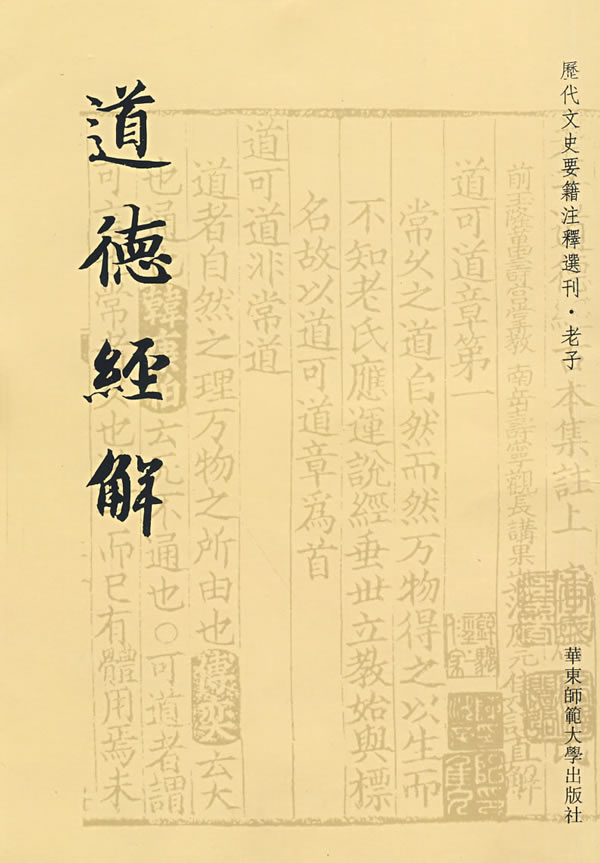 歷代文史要籍注釋選刊·老子
華東師範大學出版社
道德經解
本集註上
南岳壽寧觀長講果山范應元集註直解
道可道章第一
常久之道自然而然万物得之以生而
不知老氏應運說經垂世立教始與標
名故以道可道章爲首
道可道非常道
道者自然之理万物之所由也傅奕云大
也通也韓康伯云无不通也○可道者謂
可常也而巳有體用焉未